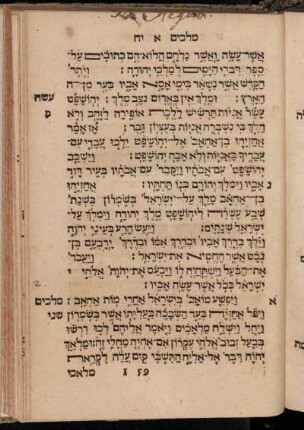 מלכים א יח
אשר עשה ואשר נלחם הלוא הם כתובים על
ספר דברי הימים למלכי יהודה : ויתר
הקדש אשר נשאר בימי אסא אביו בער מן ה
הארץ : ומלך אין באדום נצב מלך : יהושפט
עשה
עשר אניות תרשיש ללכת אופירה לזהב ולא
ק
הלך כי נשברה אניות בעציון גבר : אז אמר
אחזיהו בן אחאב אל יהושפט ילכו עבדי עם
עבדיך באניות ולא אבה יהושפט : וישכב
יהושפט עם אבתיו ויקבר עם אבתיו בעיר דוד
אביו וימלך יהורם בנו תחתיו : אחזיהו
נ
בן אחאב מלך על ישראל בשמרון בשנת
שבע עשרה ליהושפט מלך יהודה וימלך על
ישראל שנתים : ויעש הרע בעיני יהוה
וילך בדרך אביו ובדרך אמו ובדרך ירבעם בן
נבט אשר החטיא את ישראל : ויעבד
את הבעל וישתחוה לו ויכעס את יהוה אלהי
ישראל ככל אשר עשה אביו :
א
ויפשע מואב בישראל אחרי מות אחאב :
מלכים
ויפל אחזיה בעד השבכה בעליתו אשר בשמרון
שני
ויחל וישלח מלאכים ויאמר אליהם לכו דרשו
בבעל זבוב אלהי עקרון אם אחיה מחלי זה : ומלאך
יהוה דבר אל אליה התשבי קום עלה לקראת
159
מלאכי